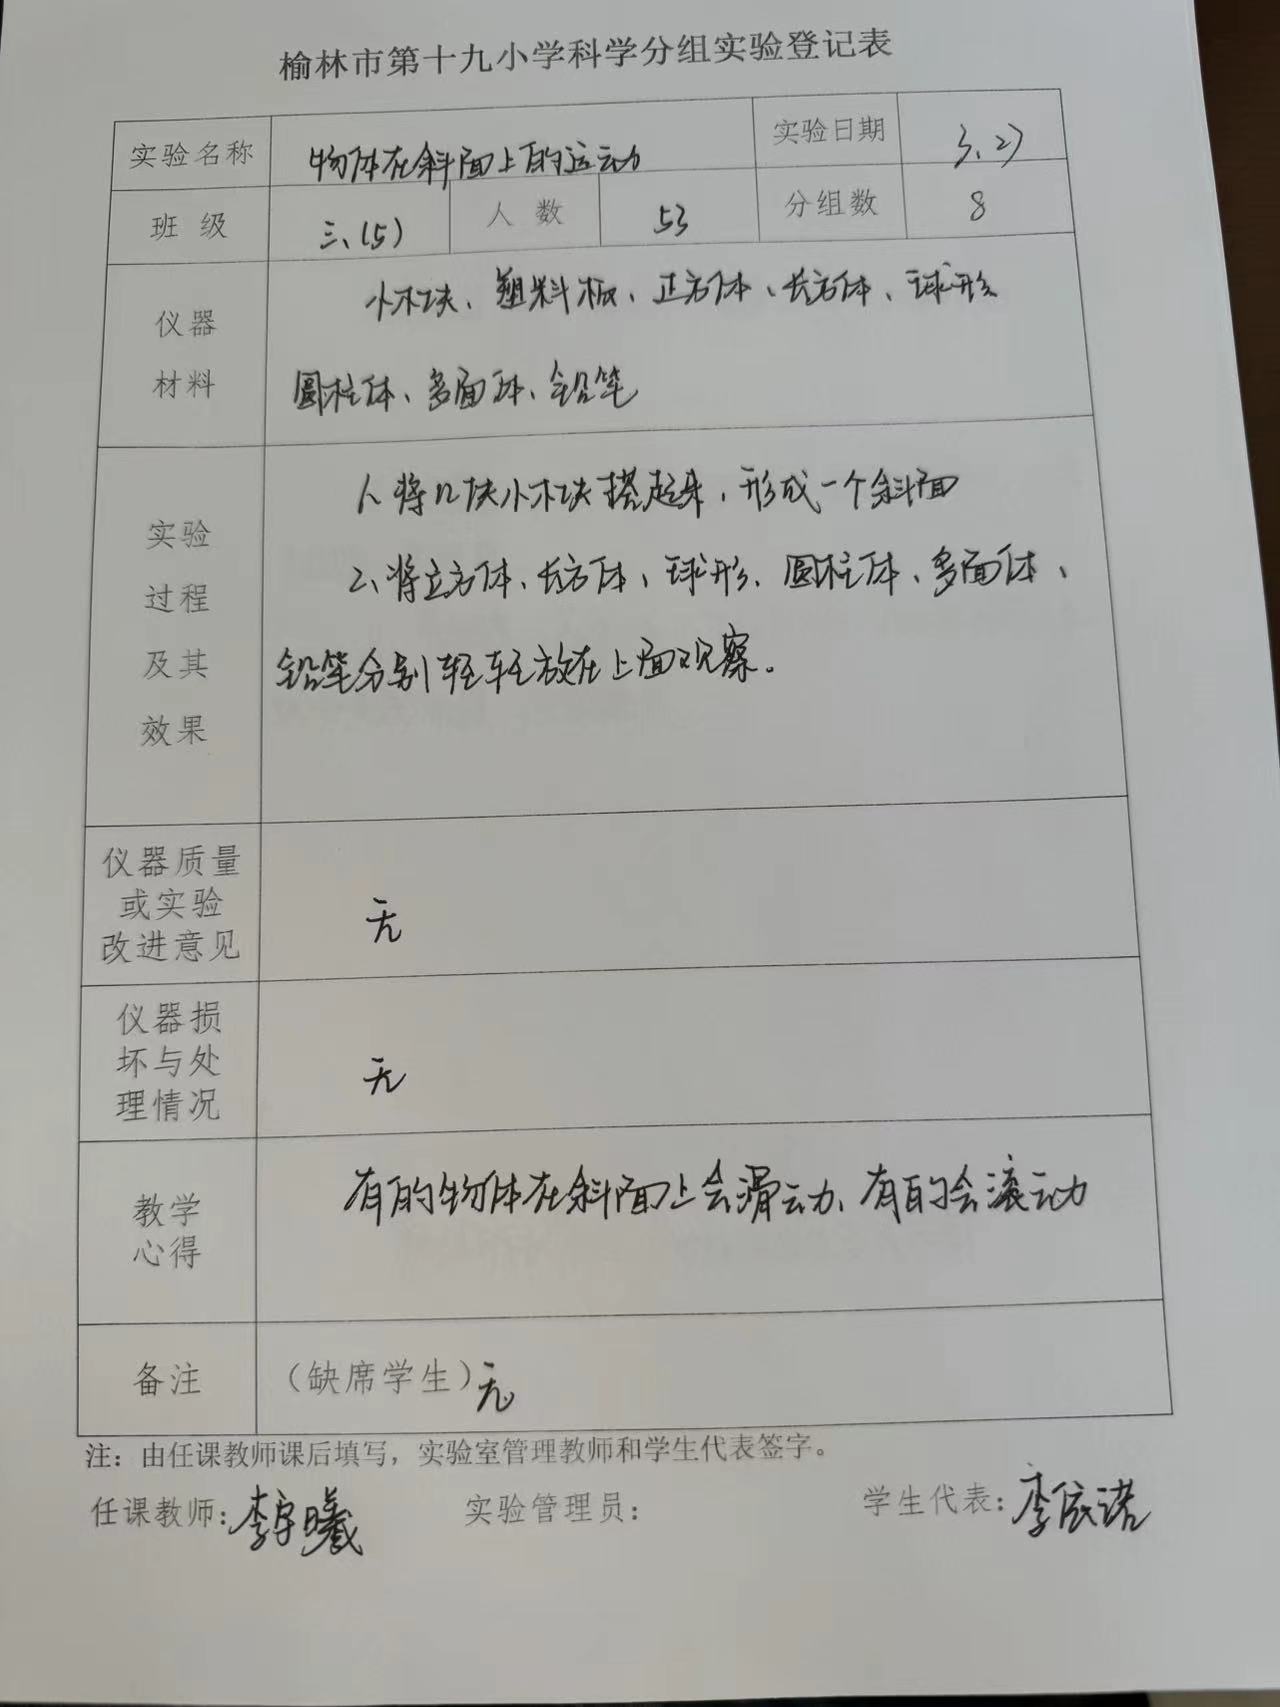 榆林市第十九小学科学分组实验登记表
实验名称 物体在斜面上的运动 实验日期 3.27
班 级 三、(5) 人 数 53 分组数 8
仪器
材料
小木块、塑料板、正方体、长方体、球形
圆柱体、多面体、铅笔
实验
过程
及其
效果
1、将几块小木块搭起来，形成一个斜面
2、将立方体、长方体、球形、圆柱体、多面体、
铅笔分别轻轻放在上面观察。
仪器质量
或实验
改进意见
无
仪器损
坏与处
理情况
无
教学
心得
有的物体在斜面上会滑动、有的会滚动
备注 （缺席学生）无
注：由任课教师课后填写，实验室管理教师和学生代表签字。
任课教师：李宇曦 实验管理员： 学生代表：李依诺